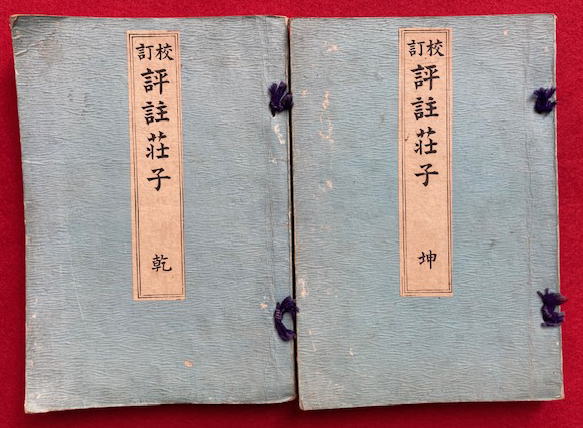 校訂
評註荘子
乾
校訂
評註荘子
坤